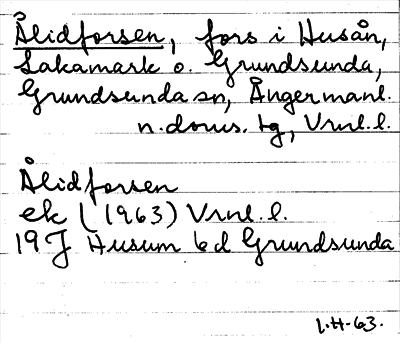 Ålidforsen, fors i Husån,
Sakamark o. Grundsunda,
Grundsunda sn, Ångermanl.
n. doms. tg, Vrnl. l.
Ålidforsen
ek (1963) Vrnl. l.
19 J Husum 6 d Grundsunda
1.H-63.